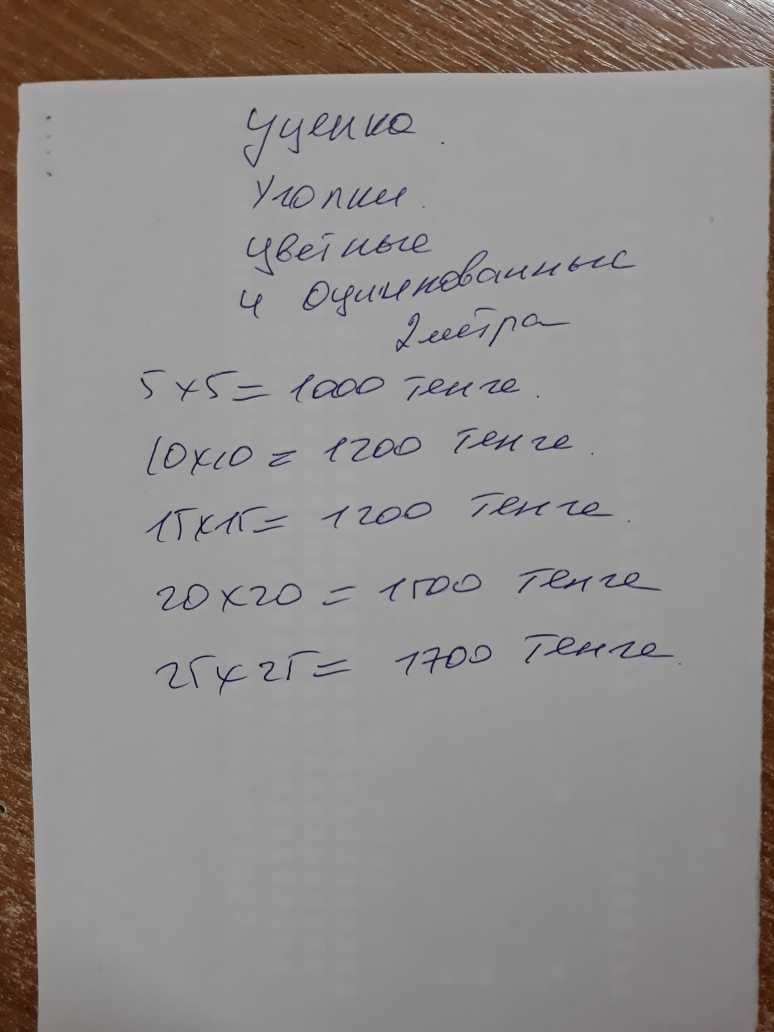 Уценка.
Уголки.
цветные
и оцинкованные
2 метра
5x5 = 1000 тенге.
10x10 = 1200 тенге.
15x15 = 1200 тенге.
20x20 = 1500 тенге
25x25 = 1700 тенге.